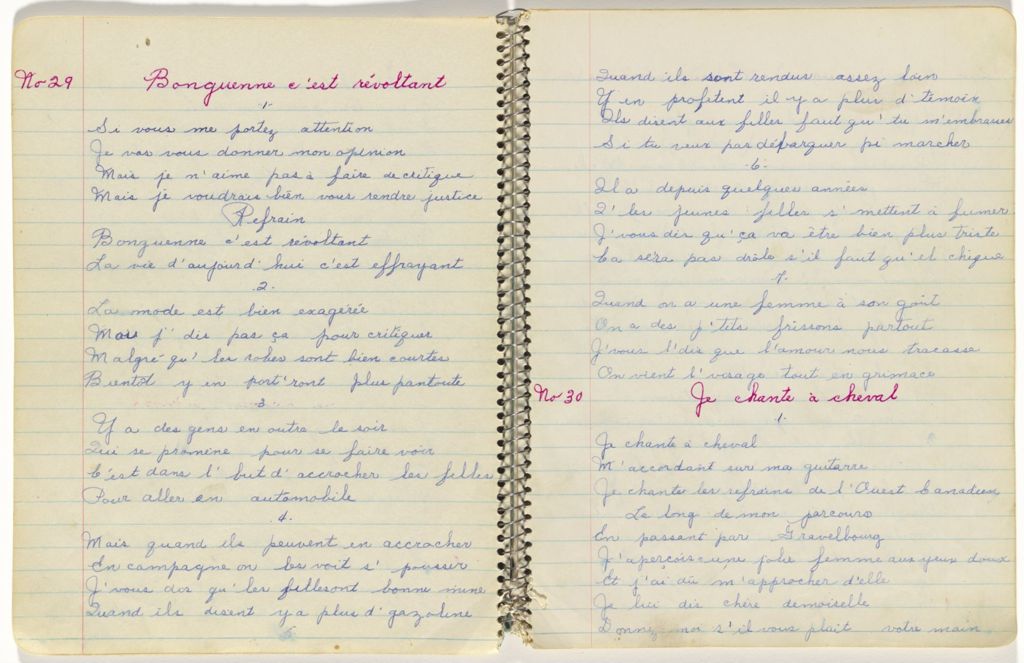 No 29 Bonguenne c'est révoltant
-1-
Si vous me portez attention
Je vas vous donner mon opinion
Mais je n'aime pas à faire de critique
Mais je voudrais bien vous rendre justice
Refrain
Bonguenne c'est révoltant
La vie d'aujourd'hui c'est effrayant
.2.
La mode est bien exagérée
Mais j' dis pas ça pour critiquer
Malgré qu' les robes sont bien courtes
Bientôt y en port'ront plus pantoute
.3.
Y a des gens en outre le soir
Qui se promène pour se faire voir
C'est dans l' but d' accrocher les filles
Pour aller en automobile
.4.
Mais quand ils peuvent en accrocher
En campagne on les voit s' poussir
J'vous dis qu'les filles ont bonne mine
Quand ils disent y a plus d' gazoline
5
Quand ils sont rendus assez loin
Y en profitent il y a plus d' témoix
Ils disent aux filles faut qu' tu m'embrasses
Si tu veux pas débarquer pi marcher
-6-
Il a depuis quelques années
Q' les jeunes filles s' mettent à fumer
J'vous dis qu'ça va être bien plus triste
Ca sera pas drôle s'il faut qu'el chique
.7.
Quand on a une femme à son goût
On a des p'tits frissons partout
J'vous l'dis que l'amour nous tracasse
On vient l' visage tout en grimace
No 30 Je chante à cheval
.1.
Je chante à cheval
M'accordant sur ma guitarre
Je chante les refrains de l'Ouest Canadien
Le long de mon parcours
En passant par Gravelbourg
J'aperçois une jolie femme aux yeux doux
Et j'ai dû m'approcher d'elle
Je lui dis chère demoiselle
Donnez moi s'il vous plait votre main